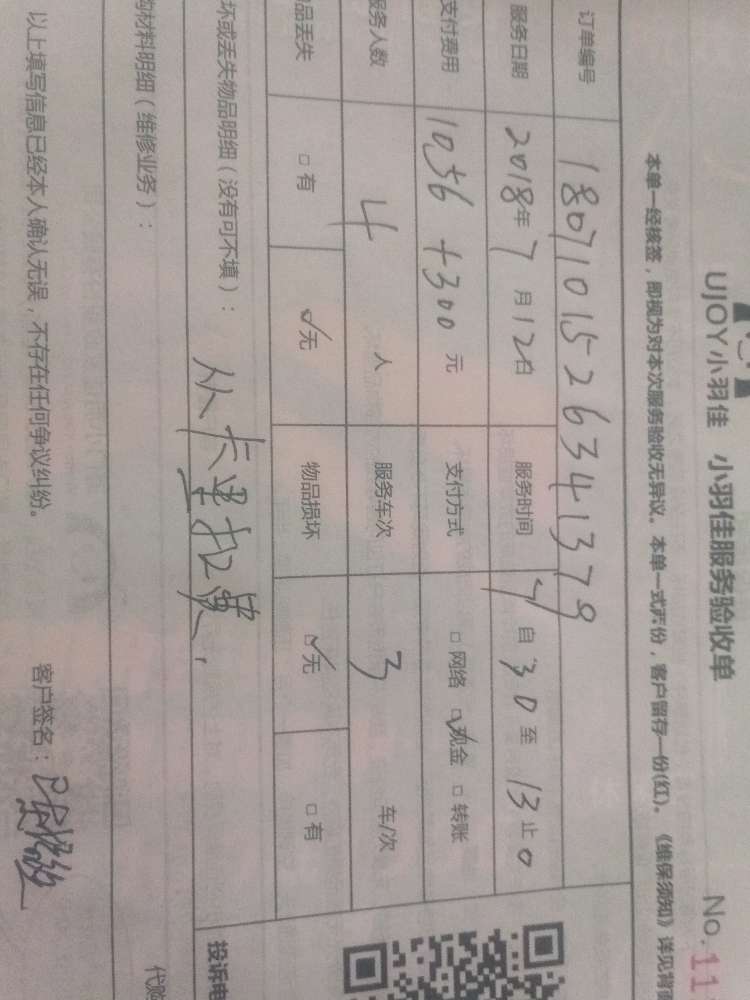 UJOY小羽佳 小羽佳服务验收单 No.11
本单一经核签，即视为对本次服务验收无异议。本单一式两份，客户留存一份(红)。《维保须知》详见背
订单编号 1807101526341379
服务日期 2018年7月12日 服务时间 自 30 至 13 止 0
支付费用 1056+300 元 支付方式 □网络 ☑现金 □转账
服务人数 4 人 服务车次 3 车/次
品丢失 □有 ☑无 物品损坏 ☑无 □有
坏或丢失物品明细（没有可不填）： 从卡里扣
投诉电
购材料明细（维修业务）：
代购
以上填写信息已经本人确认无误，不存在任何争议纠纷。 客户签名：